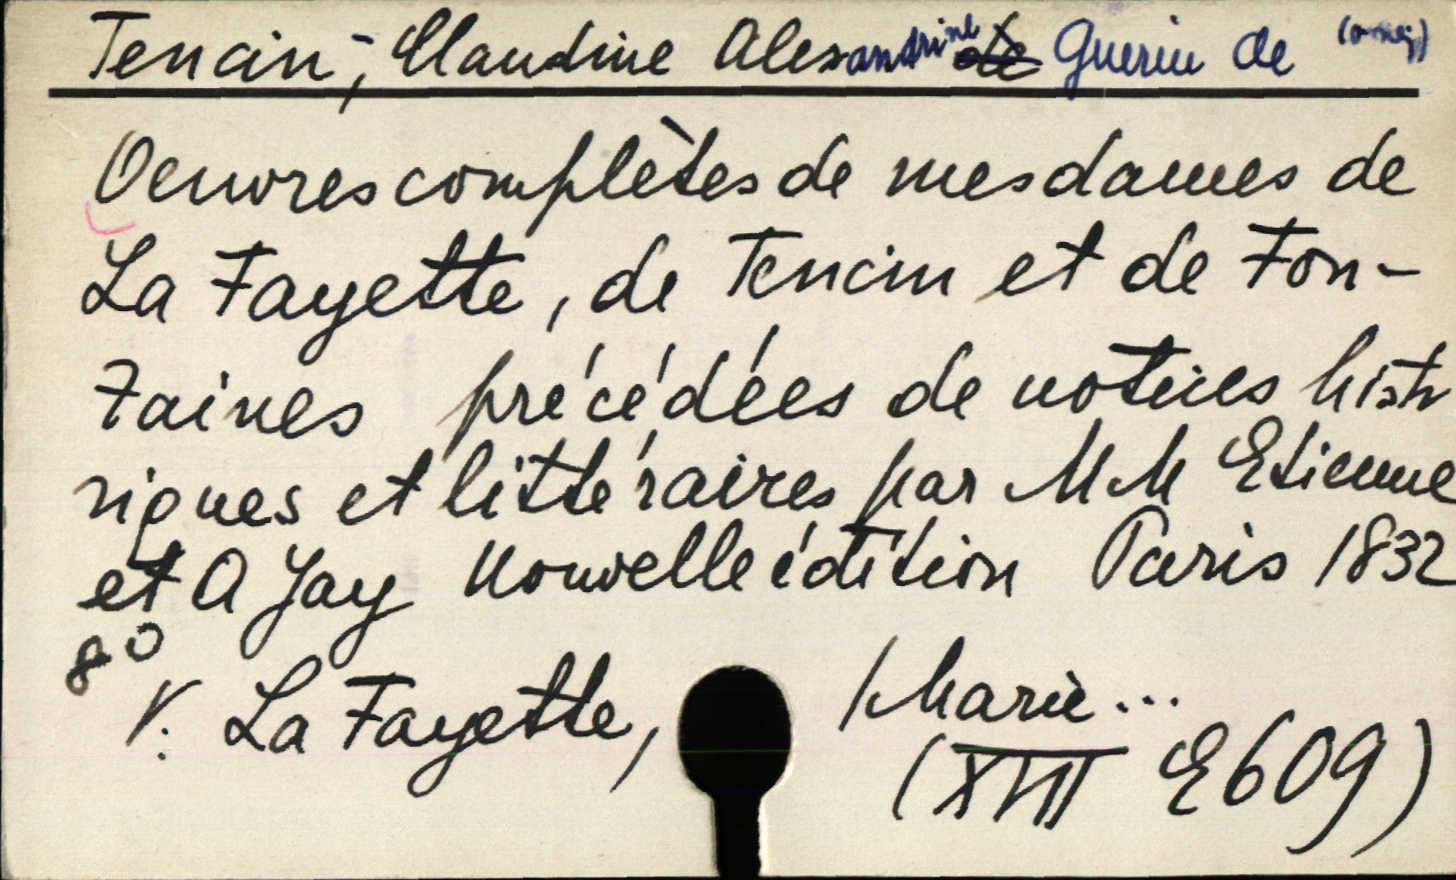 Tencin, Claudine Alexandrine de Guerin de
Oeuvres complètes de mesdames de
La Fayette, de Tencin et de Fon-
taines précédées de notices histo
riques et littéraires par MM Etienne
et A Jay Nouvelle édition Paris 1832
8°
V. La Fayette, Marie...
(XVII E609)